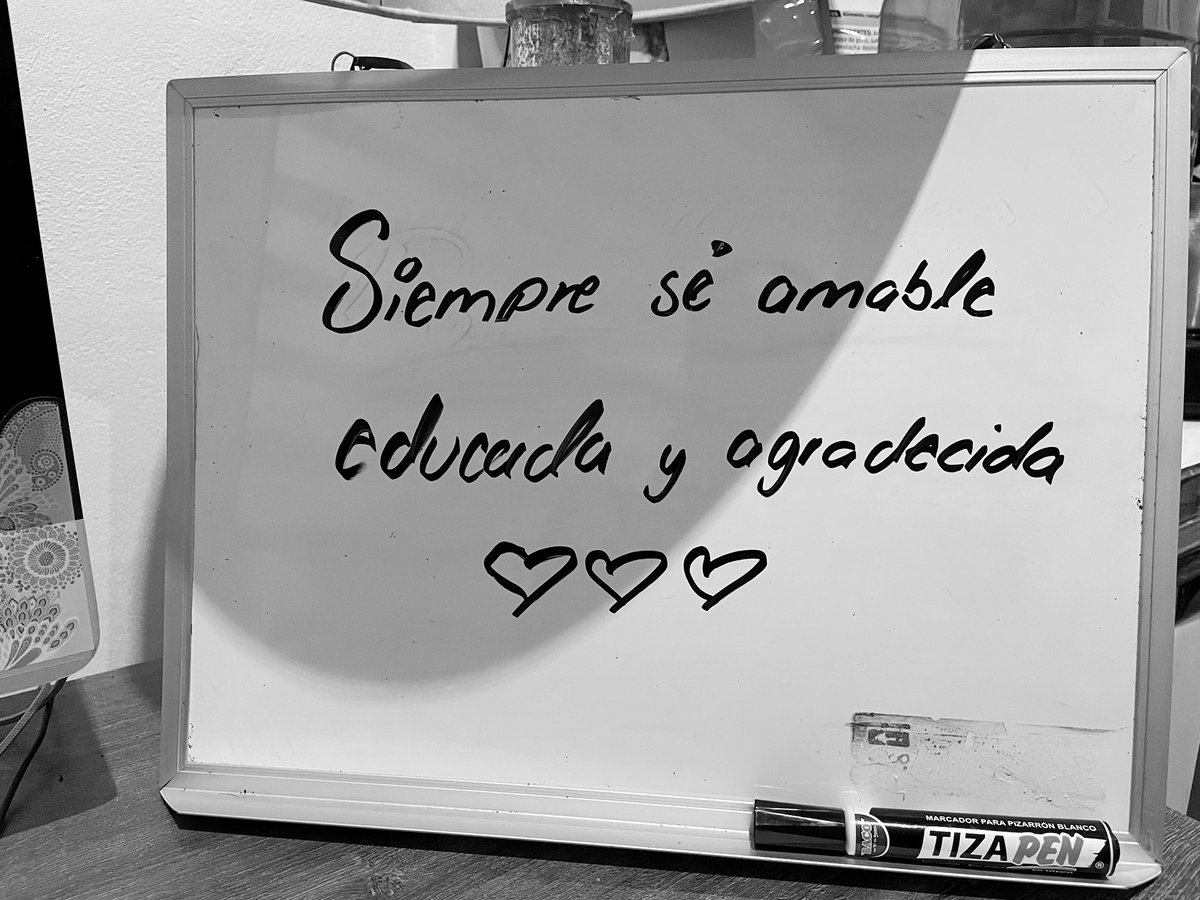 Siempre sé amable
educada y agradecida
MARCADOR PARA PIZARRÓN BLANCO
TIZA PEN